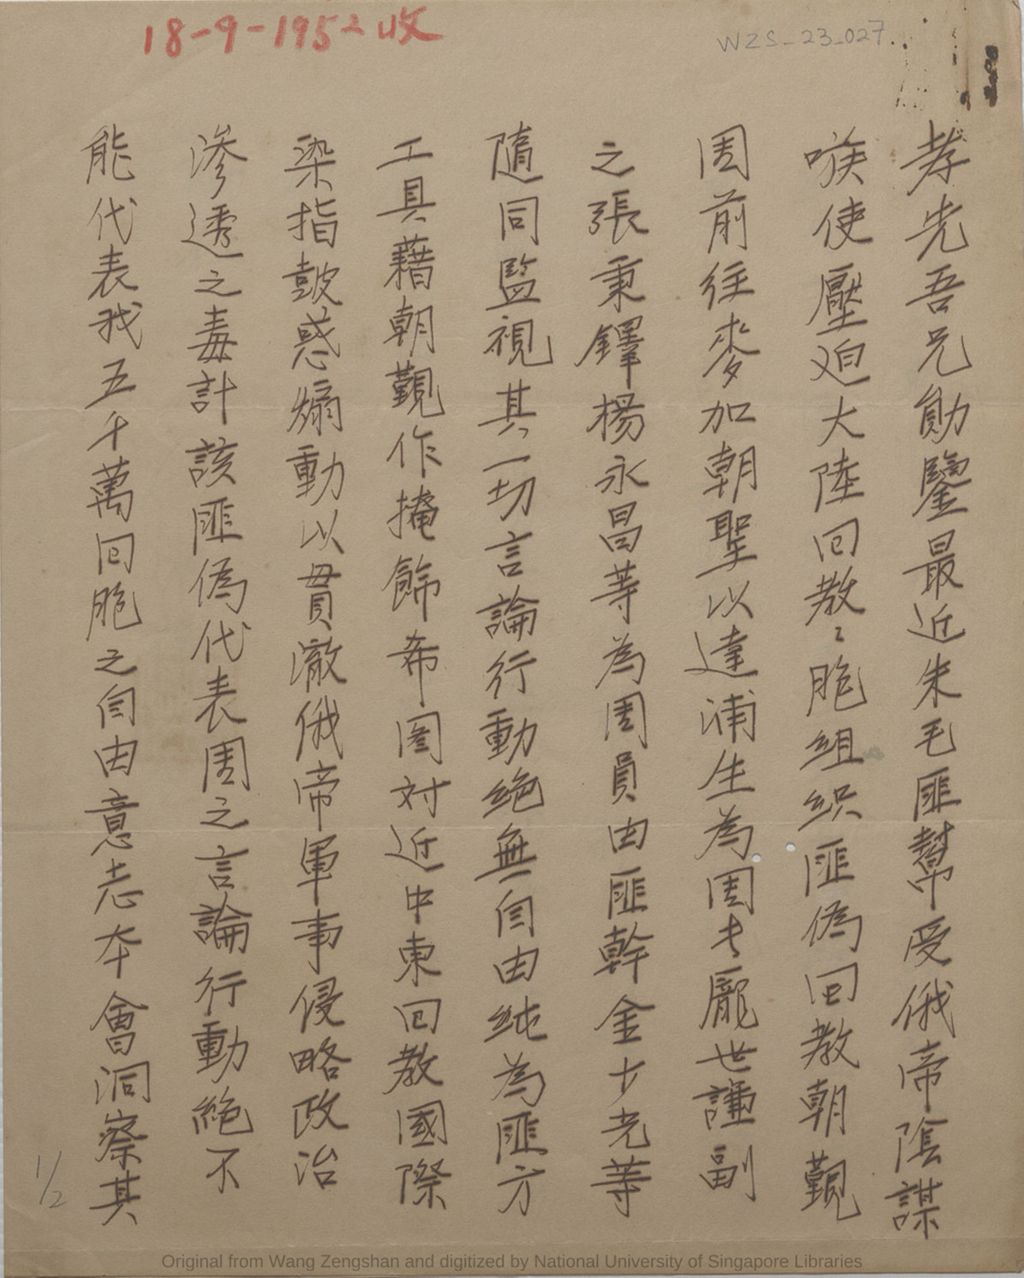 18-9-1952收
WZS_23_027
孝先吾兄勛鑒最近朱毛匪幫受俄帝陰謀
唆使壓迫大陸回教〻胞組织匪偽回教朝觐
团前往麥加朝聖以達浦生為团长龐世謙副
之張秉鐸楊永昌等為团員由匪幹金少光等
隨同監視其一切言論行動絕無自由純為匪方
工具藉朝覲作掩飾希圖対近中東回教國際
染指鼓惑煽動以貫澈俄帝軍事侵略政治
滲透之毒計該匪偽代表团之言論行動絕不
能代表我五千萬回胞之自由意志本會洞察其
1/2
Original from Wang Zengshan and digitized by National University of Singapore Libraries